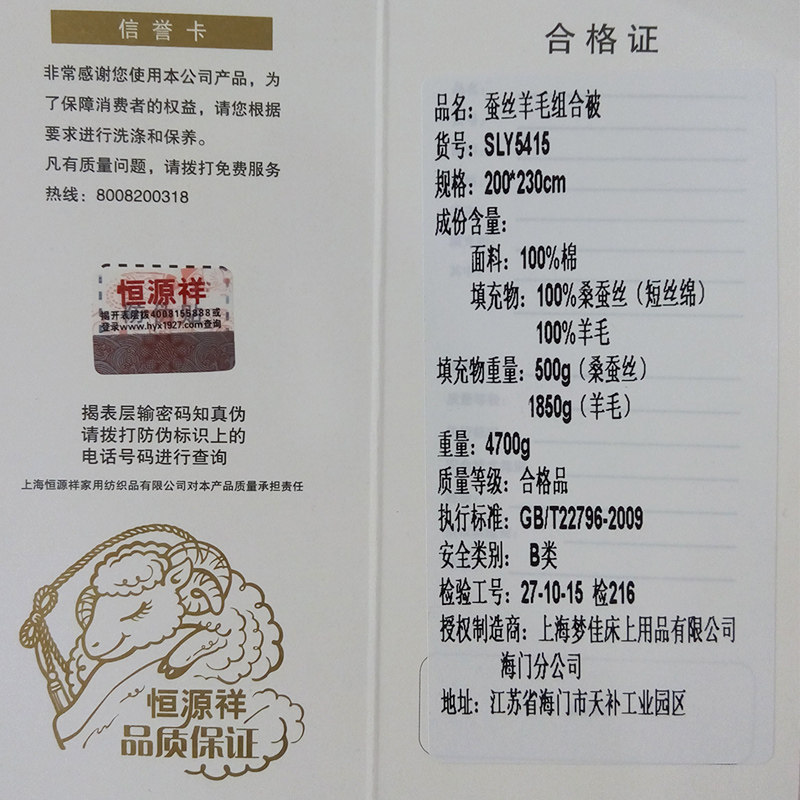 信誉卡
非常感谢您使用本公司产品，为
了保障消费者的权益，请您根据
要求进行洗涤和保养。
凡有质量问题，请拨打免费服务
热线：8008200318
恒源祥
揭开表层拨4008155888或
登录www.hyx1927.com查询
揭表层输密码知真伪
请拨打防伪标识上的
电话号码进行查询
上海恒源祥家用纺织品有限公司对本产品质量承担责任
恒源祥
品质保证
合格证
品名：蚕丝羊毛组合被
货号：SLY5415
规格：200*230cm
成份含量：
面料：100%棉
填充物：100%桑蚕丝（短丝绵）
100%羊毛
填充物重量：500g（桑蚕丝）
1850g（羊毛）
重量：4700g
质量等级：合格品
执行标准：GB/T22796-2009
安全类别： B类
检验工号：27-10-15 检216
授权制造商：上海梦佳床上用品有限公司
海门分公司
地址：江苏省海门市天补工业园区